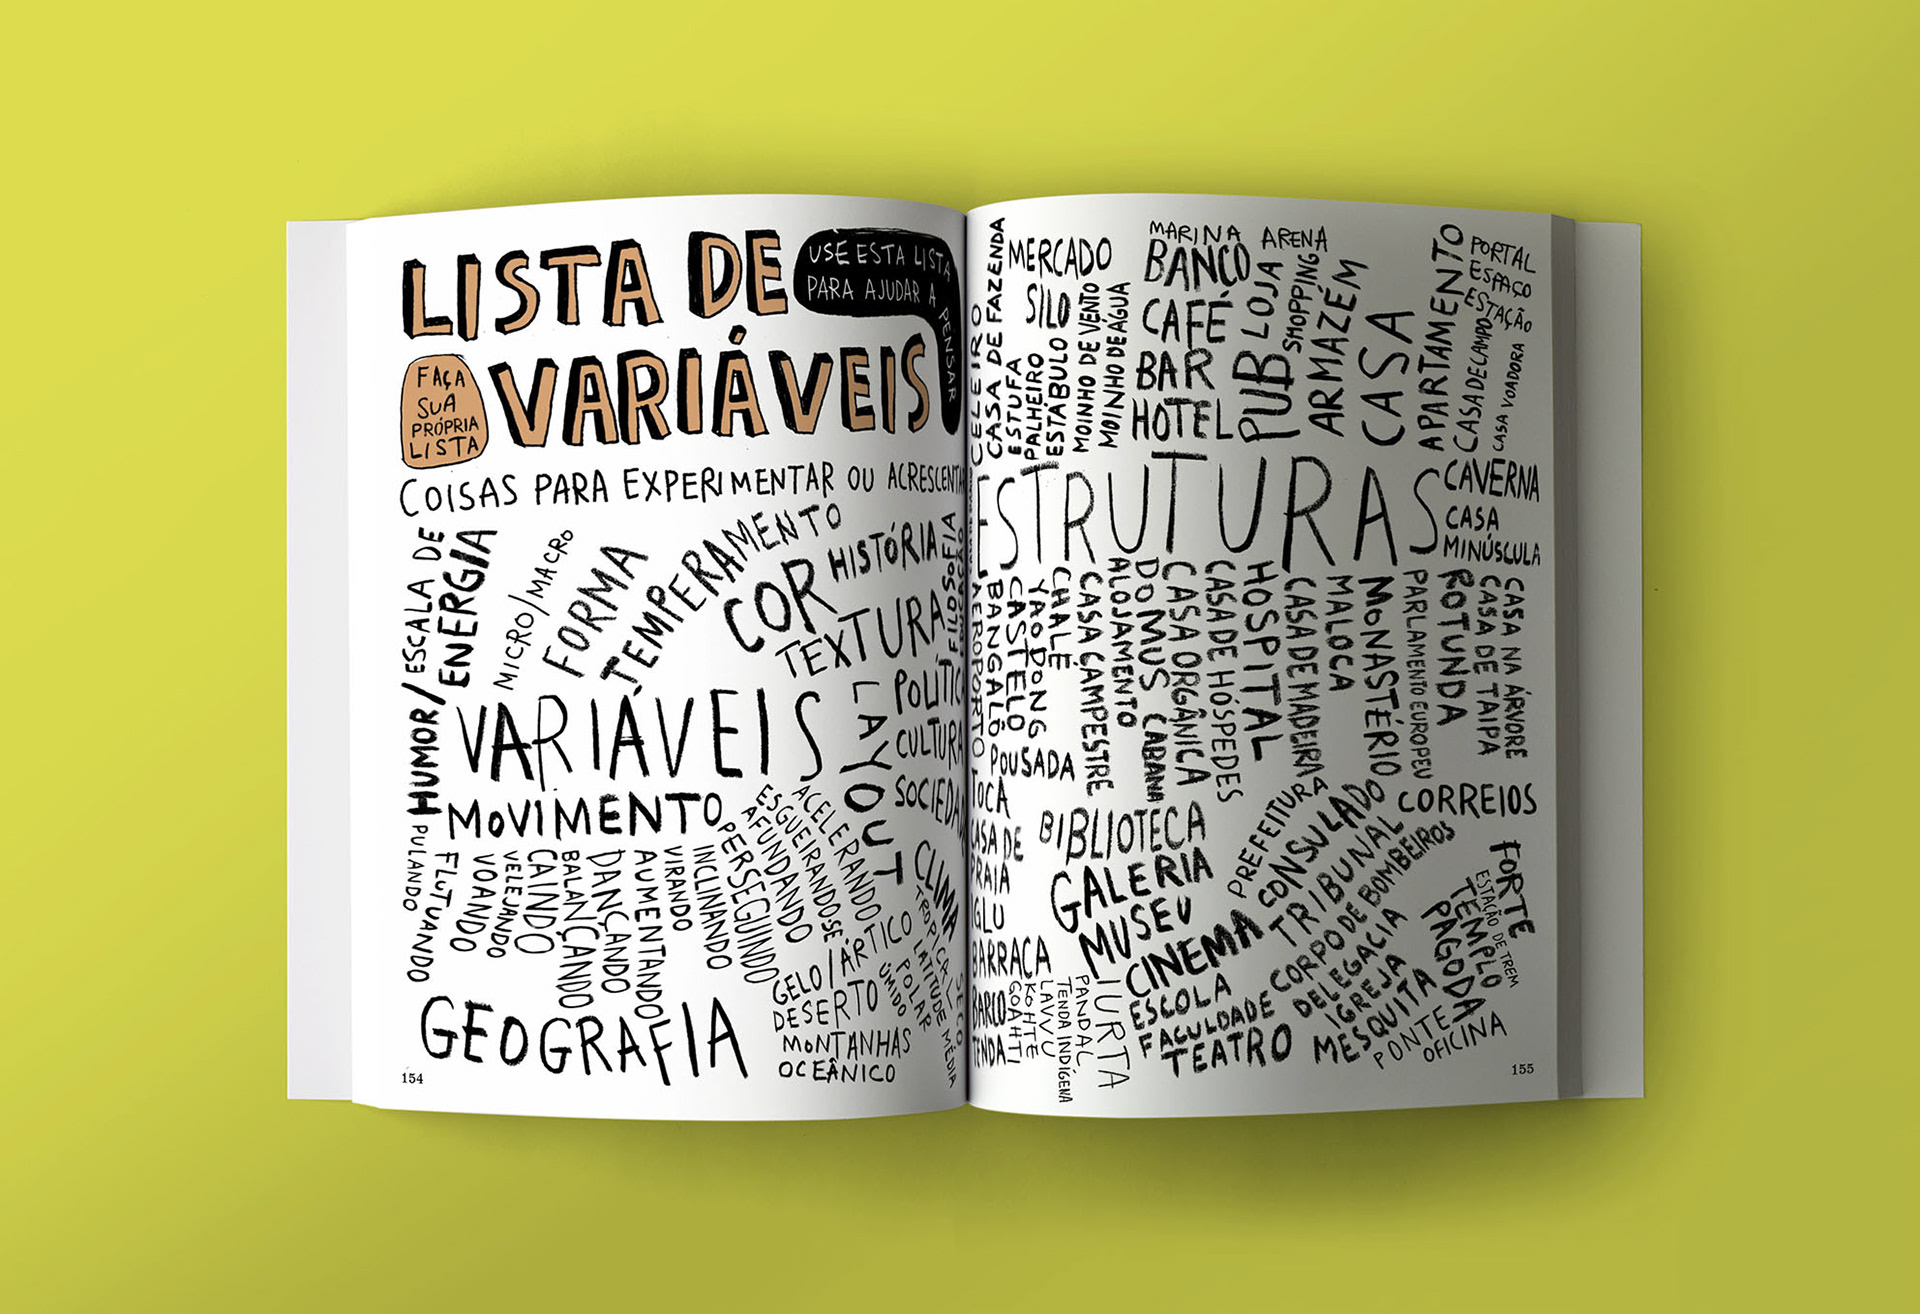 LISTA DE
VARIÁVEIS
USE ESTA LISTA
PARA AJUDAR A
PENSAR
FAÇA
SUA
PRÓPRIA
LISTA
COISAS PARA EXPERIMENTAR OU ACRESCENTAR
HUMOR/ESCALA DE
ENERGIA
MICRO/MACRO
FORMA
TEMPERAMENTO
COR
HISTÓRIA
TEXTURA
FILOSOFIA
EDUCAÇÃO
VARIÁVEIS
LAYOUT
POLÍTIC
CULTURA
SOCIEDA
MOVIMENTO
PULANDO
FLUTUANDO
VOANDO
VELEJANDO
CAINDO
BALANÇANDO
DANÇANDO
AUMENTANDO
VIRANDO
INCLINANDO
PERSEGUINDO
AFUNDANDO
ESGUEIRANDO-SE
ACELERANDO
CLIMA
TROPICAL
SECO
LATITUDE MÉDIA
POLAR
ÚMIDO
GEOGRAFIA
GELO/ÁRTICO
DESERTO
MONTANHAS
OCEÂNICO
154
CELEIRO
CASA DE FAZENDA
MERCADO
SILO
ESTUFA
PALHEIRO
ESTÁBULO
MOINHO DE VENTO
MOINHO DE ÁGUA
MARINA
ARENA
BANCO
CAFÉ
BAR
HOTEL
PUB
LOJA
SHOPPING
ARMAZÉM
CASA
APARTAMENTO
PORTAL
ESPAÇO
ESTAÇÃO
CASA DE CAMPO
CASA VOADORA
ESTRUTURAS
CAVERNA
CASA
MINÚSCULA
AEROPORTO
BANGALÔ
CASTELO
YAODONG
CHALÉ
CASA CAMPESTRE
ALOJAMENTO
DOMUS
CABANA
CASA ORGÂNICA
CASA DE HÓSPEDES
HOSPITAL
CASA DE MADEIRA
MALOCA
MONASTÉRIO
PARLAMENTO EUROPEU
ROTUNDA
CASA DE TAIPA
CASA NA ÁRVORE
POUSADA
TOCA
CASA DE
PRAIA
IGLU
BARRACA
BARCO
TENDA
GOAHTI
KOHTE
LAVVU
TENDA INDÍGENA
PANDAL
IURTA
BIBLIOTECA
GALERIA
MUSEU
CINEMA
ESCOLA
FACULDADE
TEATRO
PREFEITURA
CONSULADO
TRIBUNAL
CORPO DE BOMBEIROS
DELEGACIA
IGREJA
MESQUITA
PONTE
OFICINA
CORREIOS
FORTE
ESTAÇÃO DE TREM
TEMPLO
PAGODA
155